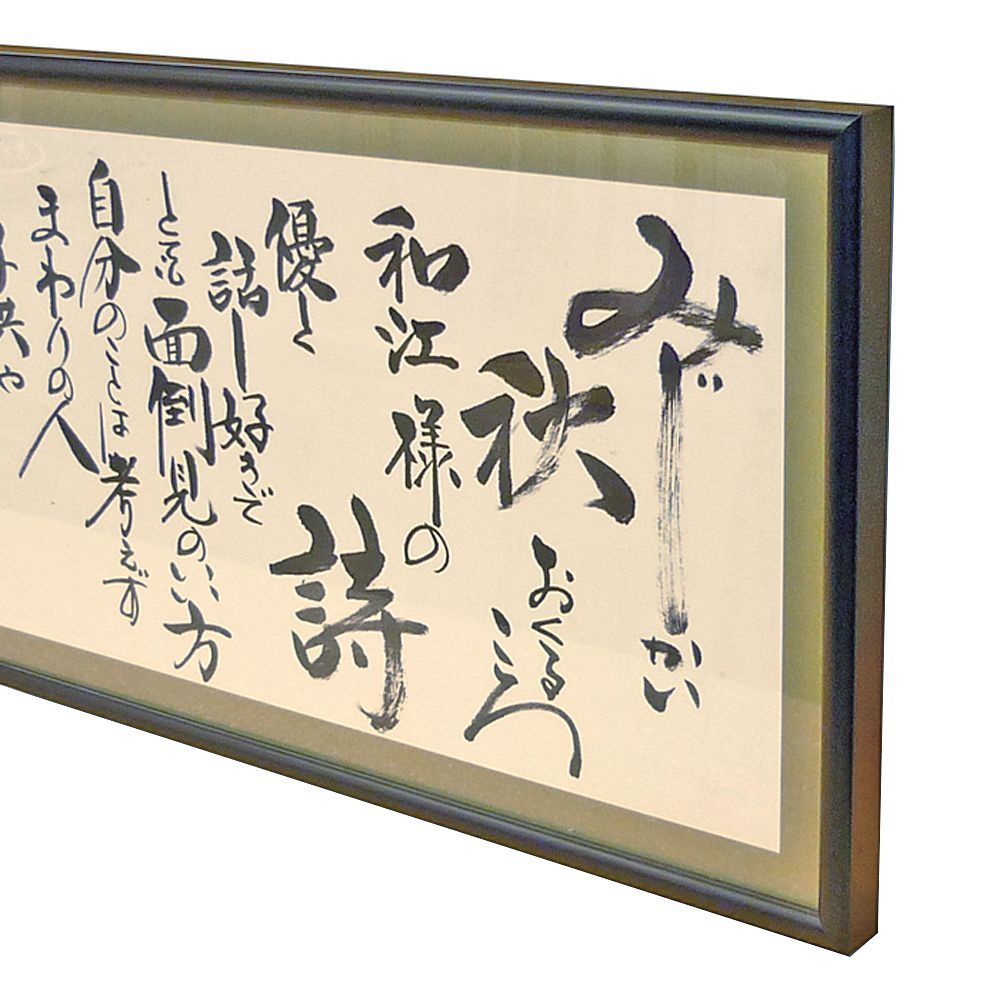 みじかい
秋おくる
和江様の
詩
優しく
話し好きで
とても面倒見のいい方
自分のことは考えず
まわりの人
供や